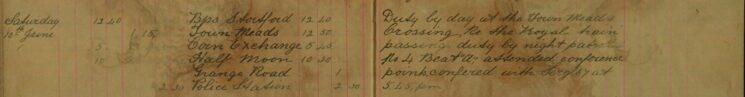 Saturday 12 40 Bps Stortford 12 40
12th June 1.15 Town Meads 12 50
5 Corn Exchange 5 45
10 Half Moon 10 30
Grange Road 1
2 30 Police Station 2 30
Duty by day at the Town Meads
Crossing, Re the Royal train
passing duty by night patrol
No 4 Beat A, attended conference
point, confered with Sergt 57 at
5.45 pm